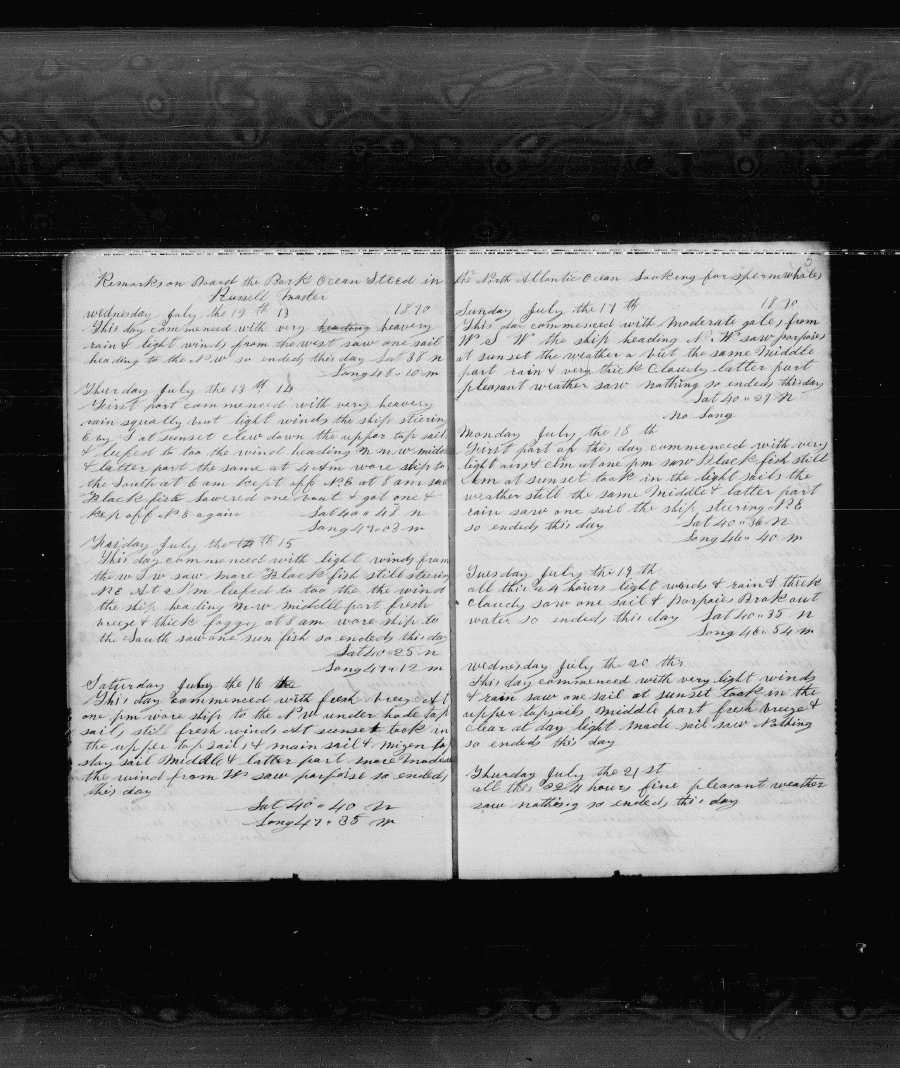 Remarks on Board the Bark Ocean Steed in
Russell Master
wednesday july the 12 th 13 1870
This day commenced with very heading heavery
rain & light winds from the west saw one sail
heading to the N.W so ended this day Lat 38 n
Long 48 " 10 m
Thurday July the 13 th 14
First part commenced with very heavery
rain squally but light winds the ship steerin
E by S at sunset clew down the uppar top sail
& leefed to too the wind heading n n w middle
& latter part the same at 4 Am wore ship to
the South at 6 am kept off NE at 8 am saw
Black fish Lowered one boat & got one &
kep off N E again Lat 40 " 48 N
Long 47 " 03 m
Friday July the 14 th 15
This day commenced with light winds from
the w S w saw more Black fish still steering
N E At 2 Pm leefed to too the the wind
the ship heading n w middle part fresh
breeze & thick foggy at 8 am wore ship to
the South saw one sun fish so ended this day
Lat 40 " 25 N
Long 47 " 12 m
Saturday July the 16 the
This day commenced with fresh breeze At
one pm wore ship to the N W under hole top
sails still fresh winds At sunset took in
the upper top sails & main sail & mizen top
stay sail middle & latter part more moder
the wind from W saw porpoise so ended
this day
Lat 40 " 40 N
Long 47 " 35 m
5
the North Atlantic Ocean Looking for sperm whales
Sunday July the 17 th 1870
This day commenced with Moderate gales from
W S W the ship heading N. W saw porpoise
at sunset the weather a bret the same Middle
part rain & very thick Cloudy latter part
pleasant weather saw nothing so ended this day
Lat 40 " 29 N
No Long
Monday July the 18 th
First part of this day commenced with very
light airs & clm at one pm saw Black fish still
clm at sunset took in the light sails the
weather still the same Middle & latter part
rain saw one sail the ship steering N E
so ended this day Lat 40 " 36 N
Long 46 " 40 m
Tuesday July the 19 th
all this 24 hours light winds & rain & thick
cloudy saw one sail & Porpoies Brok out
water so ended this day Lat 40 " 35 N
Long 46 " 54 m
wednesday July the 20 th
This day commenced with very light winds
& rain saw one sail at sunset took in the
upper topsails Middle part fresh breeze &
clear at day light made sail saw Nothing
so ended this day
Thurday July the 21 st
all this 24 hours fine pleasant weather
saw nothing so ended this day